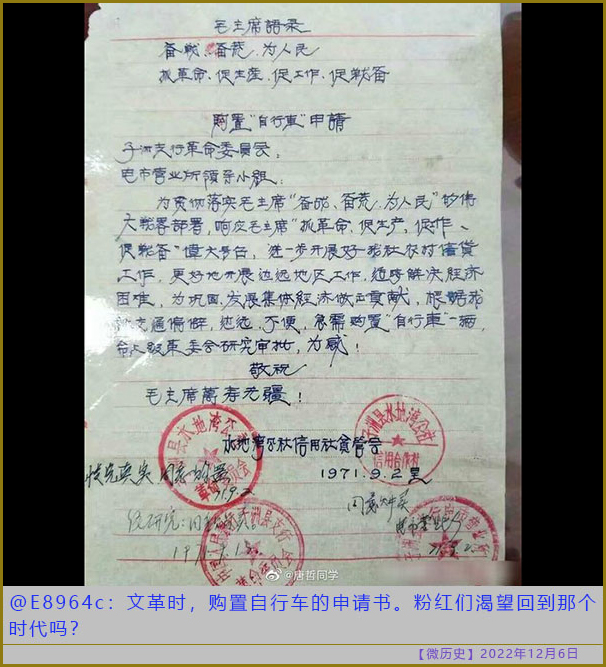 毛主席語录
备战、备荒、为人民
抓革命、促生產、促工作、促戰备
购置"自行車"申請
子洲支行革命委员会:
电市营业所领导小組:
为贯彻落实毛主席"备战、备荒、为人民"的伟
大戰畧部署,响应毛主席"抓革命、促生产、促作、
促戰备"偉大号召,進一步开展好我社农村信貸
工作,更好地开展边远地区工作,适时解决経济
困难,为巩固,发展集体経济做出貢献,根据我
社交通偏僻,边远,不便,急需购置"自行車"一辆,
上级革委会研究审批,为感!
敬祝
毛主席萬寿无疆!
水地湾公社信用社貧管会
子洲县水地湾公社
信用合作社
1971.9.2 呈
经研究:同意
@唐哲同学
@E8964c:文革时,购置自行车的申请书。粉红们渴望回到那个
时代吗?
【微历史】2022年12月6日